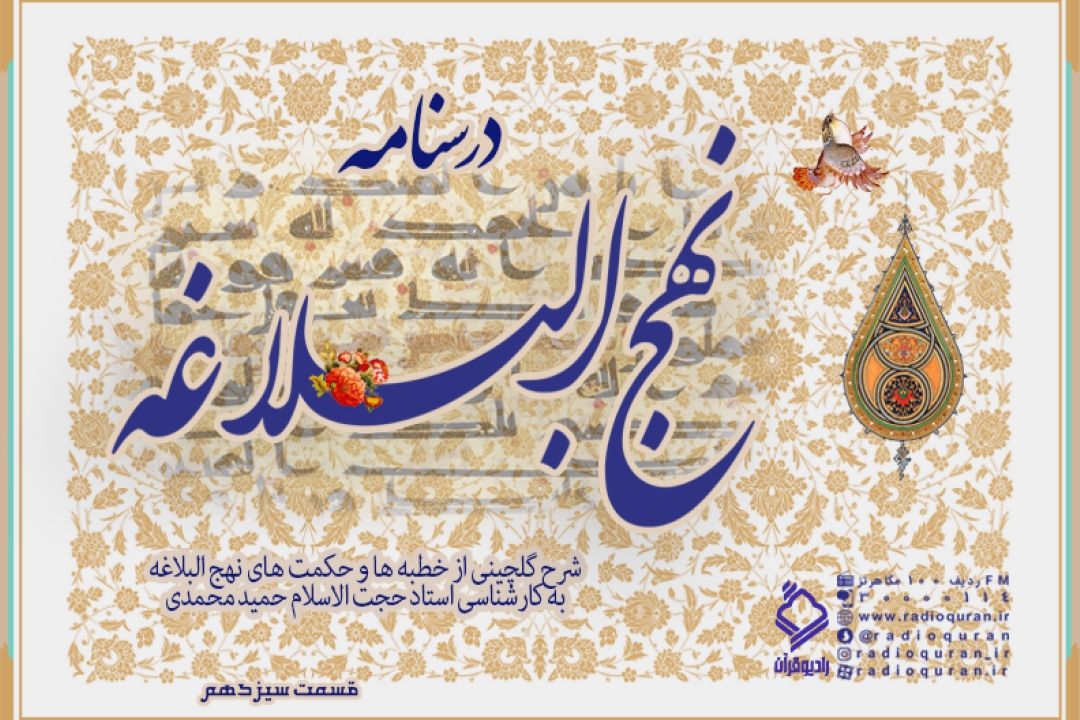 درسنامه
نهج البلاغه
شرح گلچینی از خطبه ها و حکمت های نهج البلاغه
به کارشناسی استاد حجت الاسلام حمید محمدی
FM ردیف ۱۰۰ مگاهرتز
۳۰۰۰۰۱۱۴
www.radioquran.ir
@radioquran
radioquran_ir
radioquran.ir
رادیو قرآن
قسمت سیزدهم